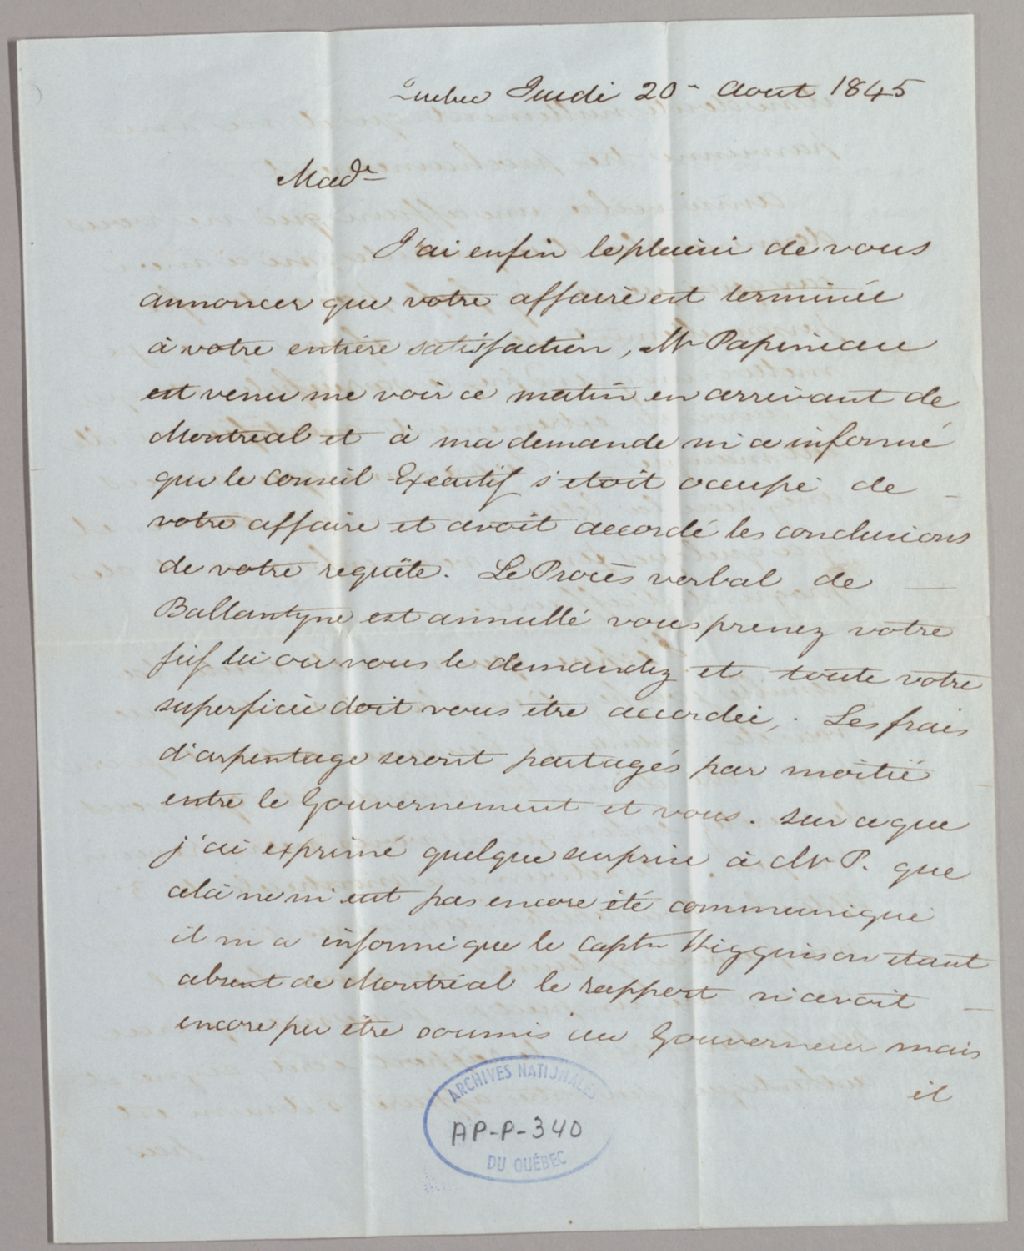 Quebec Jeudi 20 - Aout 1845
Made
J'ai enfin le plaisir de vous
annoncer que votre affaire est terminée
à votre entière satisfaction, Mr Papineau
est venu me voir ce matin en arrivant de
Montreal et à ma demande m'a informé
que le Conseil Executif s'etoit occupé de
votre affaire et avoit accordé les conclusions
de votre requête. Le Procès verbal de
Ballantyne est annullé vous prenez votre
où vous le demandez et toute votre
superficie doit vous être accordée, Les frais
d'arpentage seront partagés par moitié
entre le Gouvernement et vous. Sur ce que
j'ai exprimé quelque surprise à Mr P. que
cela ne m'eut pas encore été communiqué
il m'a informé que le Captn Higginson etant
absent de Montréal le rapport n'avoit
encore pu être soumis au Gouverneur mais
il
ARCHIVES NATIONALES
AP-P-340
DU QUÉBEC